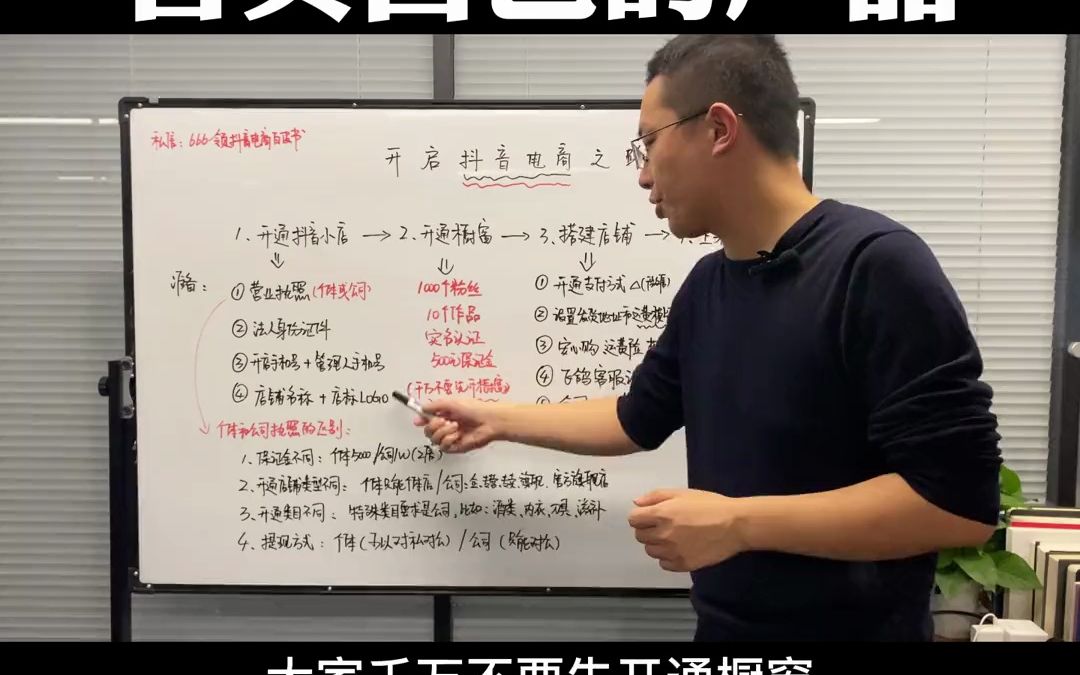 私信：666领抖音电商百科书
开启抖音电商之
1、开通抖音小店 → 2、开通橱窗 → 3、搭建店铺 →
准备：
① 营业执照（个体或公司）
② 法人身份证件
③ 开店手机号 + 管理人手机号
④ 店铺名称 + 店标LOGO
1000个粉丝
10个作品
实名认证
500元保证金
（千万不要先开橱窗）
① 开通支付方式
② 设置发货地址和运费模
③ 安心购 运费险
④ 飞鸽客服
个体和公司执照的区别：
1、保证金不同：个体5000/公司1W（2倍）
2、开通店铺类型不同：个体只能个体店/公司：企、专营、专卖、旗舰、官方旗舰店
3、开通类目不同：特殊类目要求是公司，比如：酒类、内衣、刀具、滋补
4、提现方式：个体（可以对私对公）/公司（只能对公）
大家千万不要先开通橱窗